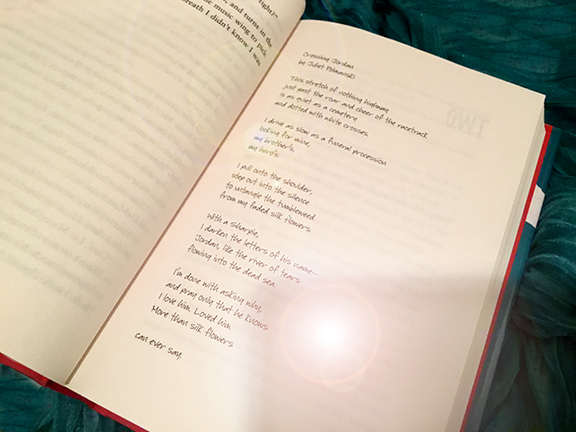 and turns in the
music wing to pick
breath I didn't know I was
Crossing Jordan
by Juliet
This stretch of nothing highway
just past the roar and cheer of the racetrack
is as quiet as a cemetery
and dotted with white crosses.
I drive as slow as a funeral procession
looking for mine,
my brother's,
my hero's.
I pull onto the shoulder,
step out into the silence
to untangle the tumbleweed
from my faded silk flowers.
With a sharpie,
I darken the letters of his name—
Jordan, like the river of tears
flowing into the dead sea.
I'm done with asking why,
and pray only that he knows
I love him. Loved him.
More than silk flowers
can ever say.